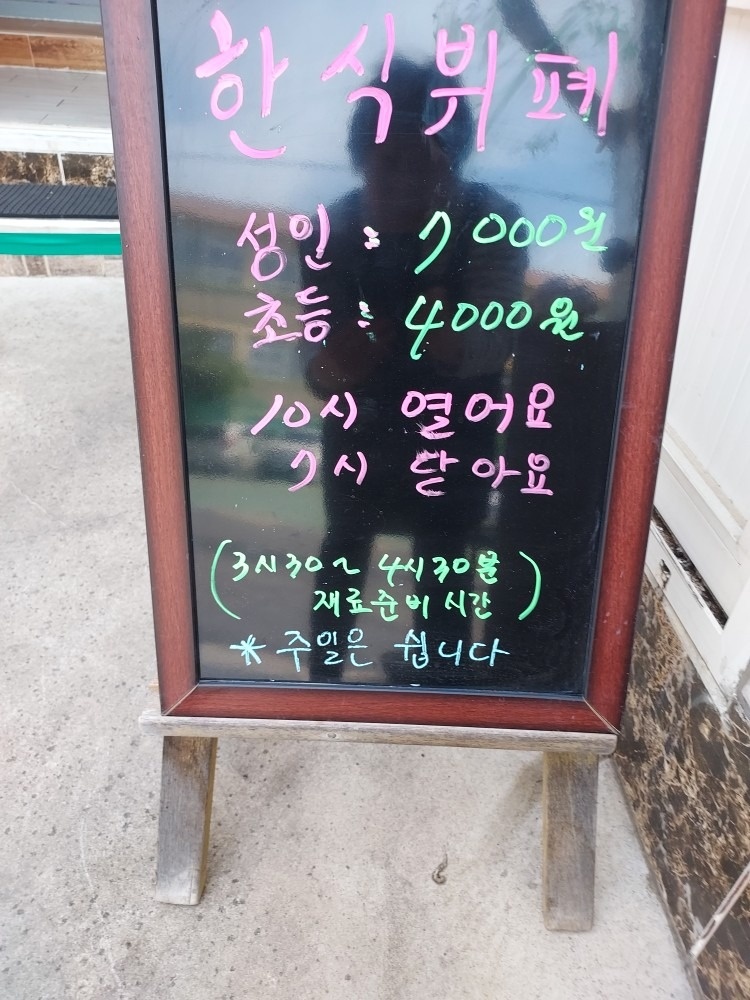 한식뷔폐
성인 : 7000원
초등 : 4000원
10시 열어요
7시 닫아요
(3시30~4시30분
재료준비 시간)
* 주일은 쉽니다